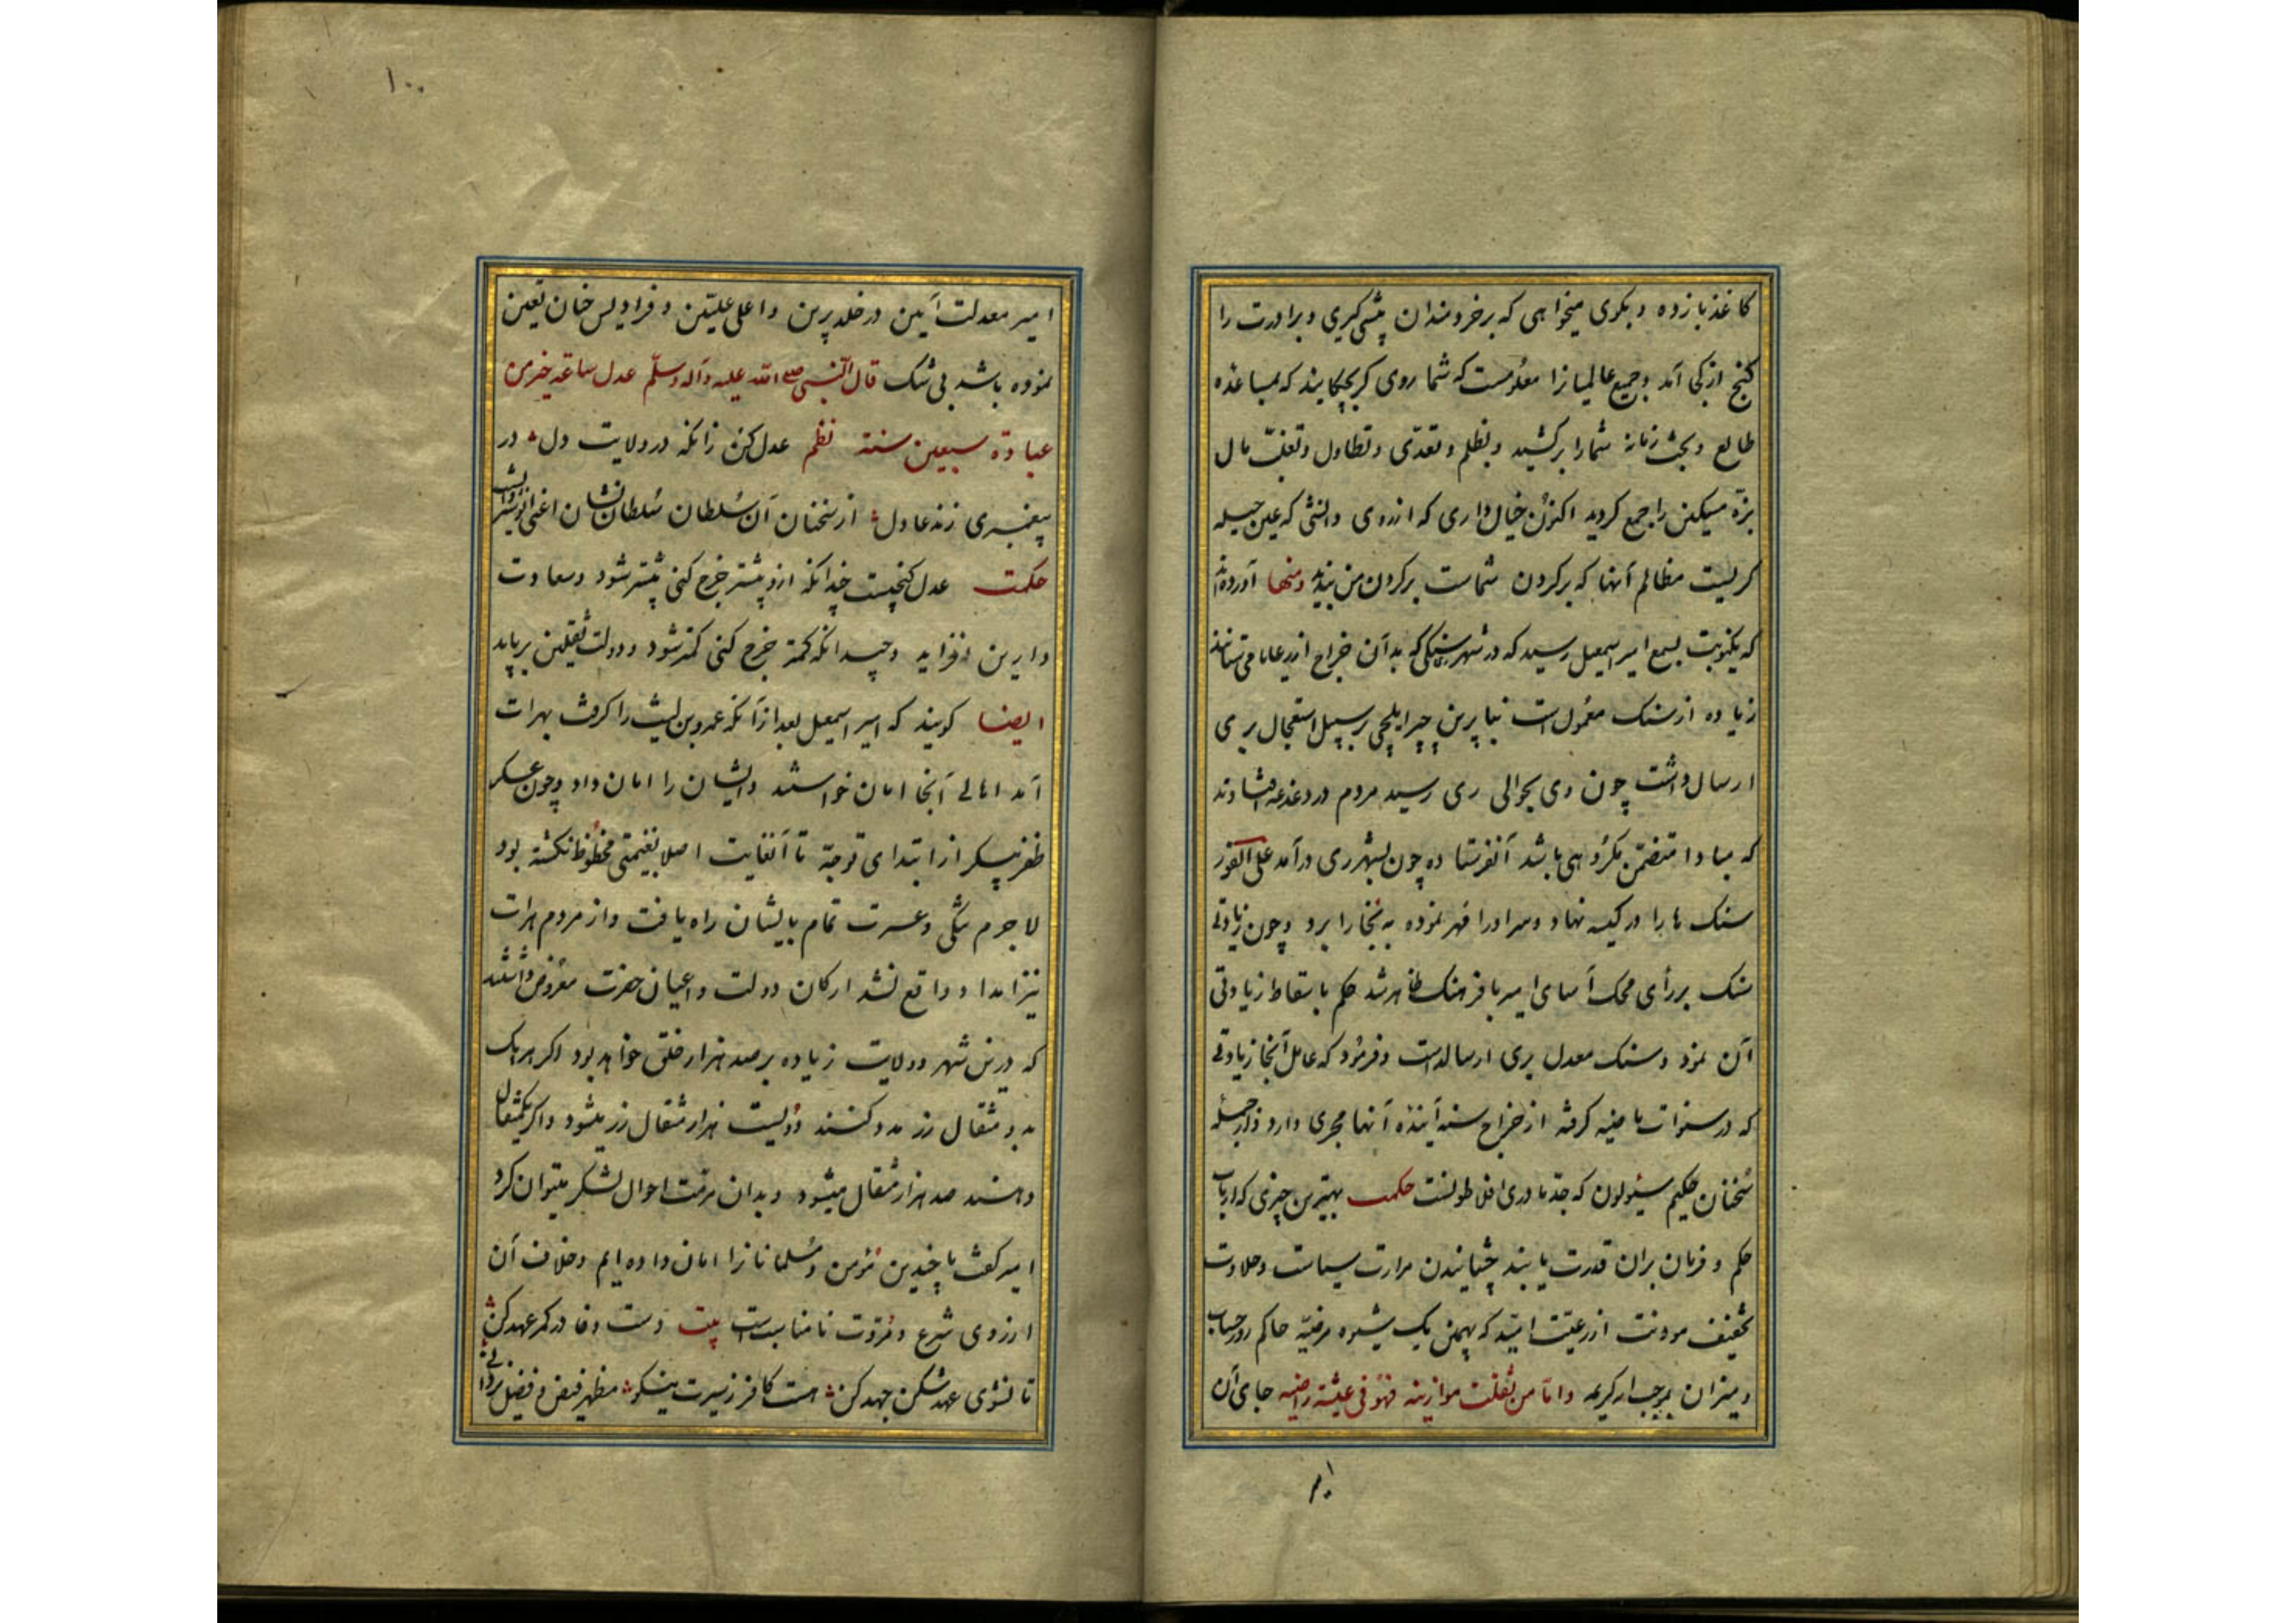 کاغذ باز ده و بکوی میخواهی که بر خردمندان پیشی کیری و برادرت را
کنج از کجا آمد و جمیع عالمیانرا معلومست که شما روی کریچکانید که بمساعده
طالع و بخت زمانه شما را برکشید و بظلم و تعدّی و تطاول و تغلّب مال
مسکین را جمع کردید اکنون خیال داری که از روی دانشی که عین حیله
کریست مظالم آنها که بر کردن شماست بر کردن من بندید ومنها آورده‌اند
که یکنوبت بسمع امیر اسمعیل رسید که در شهر ری سنکی که بدآن خراج از رعایا می‌ستانند
زیاده از سنک معمول است بنا برین چپر ایلچی بر سبیل استعجال بری
ارسال داشت چون وی بحوالی ری رسید مردم در دغدغه افتادند
که مبادا متضمّن مکروهی باشد آنفرستاده چون بشهر ری درآمد علی الفور
سنک ها را در کیسه نهاد و سر او را مهر نموده به بخارا برد و چون زیادتی
سنک بر رأی محک آسای امیر با فرهنک ظاهر شد حکم باسقاط زیادتی
آن نمود و سنک معدل بری ارسالداشت و فرمود که عامل آنجا زیادتی
که در سنوات ماضیه کرفته از خراج سنه آینده آنها مجری دارد و از جمله
سخنان حکیم سئولون که جدّ مادری افلاطونست حکمت بهترین چیزی که ارباب
حکم و فرمان بران قدرت یابند چشانیدن مرارت سیاست و حلاوت
تخفیف مونت از رعیّت است که بهمین یک شیوه مرضیّه حاکم روز حساب
و میزان بموجب کریمه واما من ثقلت موازینه فهو فی عیشة راضیه جای آن
۱۰۰
امیر معدلت آیین در خلد برین و اعلی علیّین و فرادیس جنان تعین
نموده باشد بی شک قال النّبی صلی اللّه علیه وآله وسلّم عدل ساعة خیر من
عبادة سبعین سنة نظم عدل کن زانکه در ولایت دل در
پیغمبری زند عادل از سخنان آن سُلطان سُلطان نشان اعنی انوشیروانست
حکمت عدل کنجیست چندانکه ازو بیشتر خرج کنی بیشتر شود و سعادت
دارین افزاید و چندانکه کمتر خرج کنی کمتر شود و دولت ثقلین برباید
ایضا کویند که امیر اسمعیل بعد از آنکه عمرو بن لیث را کرفت بهرات
آمد اهالی آنجا امان خواستند و ایشان را امان داد و چون عسکر
ظفر پیکر از ابتدای توجّه تا آنغایت اصلا بغنیمتی محظوظ نکشته بود
لاجرم تنکی و عسرت تمام بایشان راه یافت و از مردم هرات
نیز امداد واقع نشد ارکان دولت و اعیان حضرت معروض داشتند
که درین شهر و ولایت زیاده بر صد هزار خلق خواهد بود اکر هر یک
بدو مثقال زر مدد کنند دویست هزار مثقال زر میشود و اکر یکمثقال
دهند صد هزار مثقال میشود و بدان مرمّت احوال لشکر میتوان کرد
امیر کفت ما چندین مؤمن و مُسلمانانرا امان داده ایم و خلاف آن
از روی شرع و مُروّت نامناسب است بیت دست وفا در کمر عهد کن
تا نشوی عهد شکن جهد کن هست کافر ز سیرت نیکو مظهر فیض و فضل یزدانی